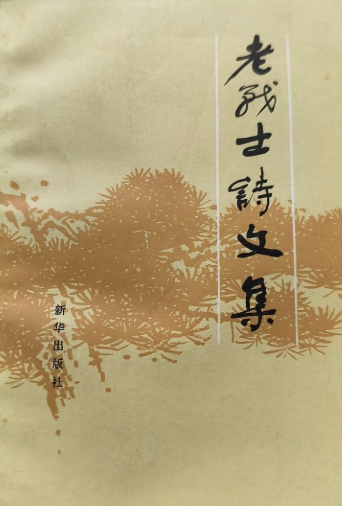 老战士詩文集
新华出版社